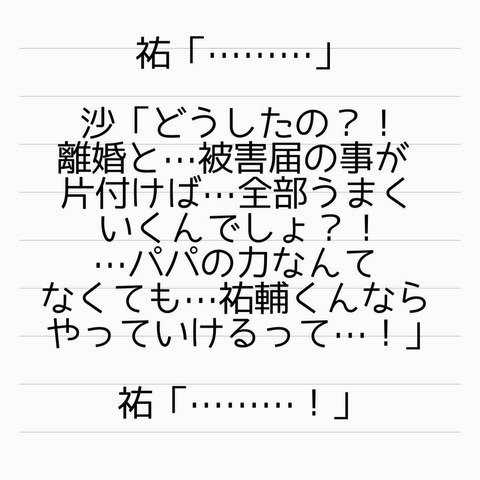 祐「………」
沙「どうしたの？！
離婚と…被害届の事が
片付けば…全部うまく
いくんでしょ？！
…パパの力なんて
なくても…祐輔くんなら
やっていけるって…！」
祐「………！」